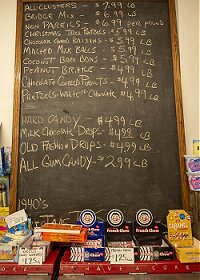 ALL CLUSTERS - $7.99 LB
BRIDGE MIX - $6.99 LB
NON PAREILS - $6.99 per pound
CHRISTMAS TREE - $5.99 LB
CHOCOLATE COVERED RAISINS - $5.99 LB
MALTED MILK BALLS - $5.99 LB
COCONUT BON BONS - $5.99 LB
PEANUT BRITTLE - $4.99 LB
CHOCOLATE COVERED PEANUTS - $4.99 LB
PRETZELS-MILK CHOCOLATE $4.99 LB
HARD CANDY - $4.99 LB
MILK CHOCOLATE DROPS - $4.99 LB
OLD FASHION DROPS - $4.99 LB
ALL GUM CANDY - $2.99 LB
1940's
French Chew
French Chew
French Chew
$1.25
$1.25
HAVE A